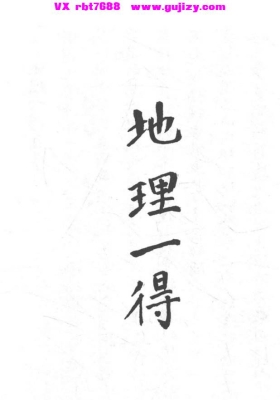 VX rbt7688 www.gujizy.com
地理一得